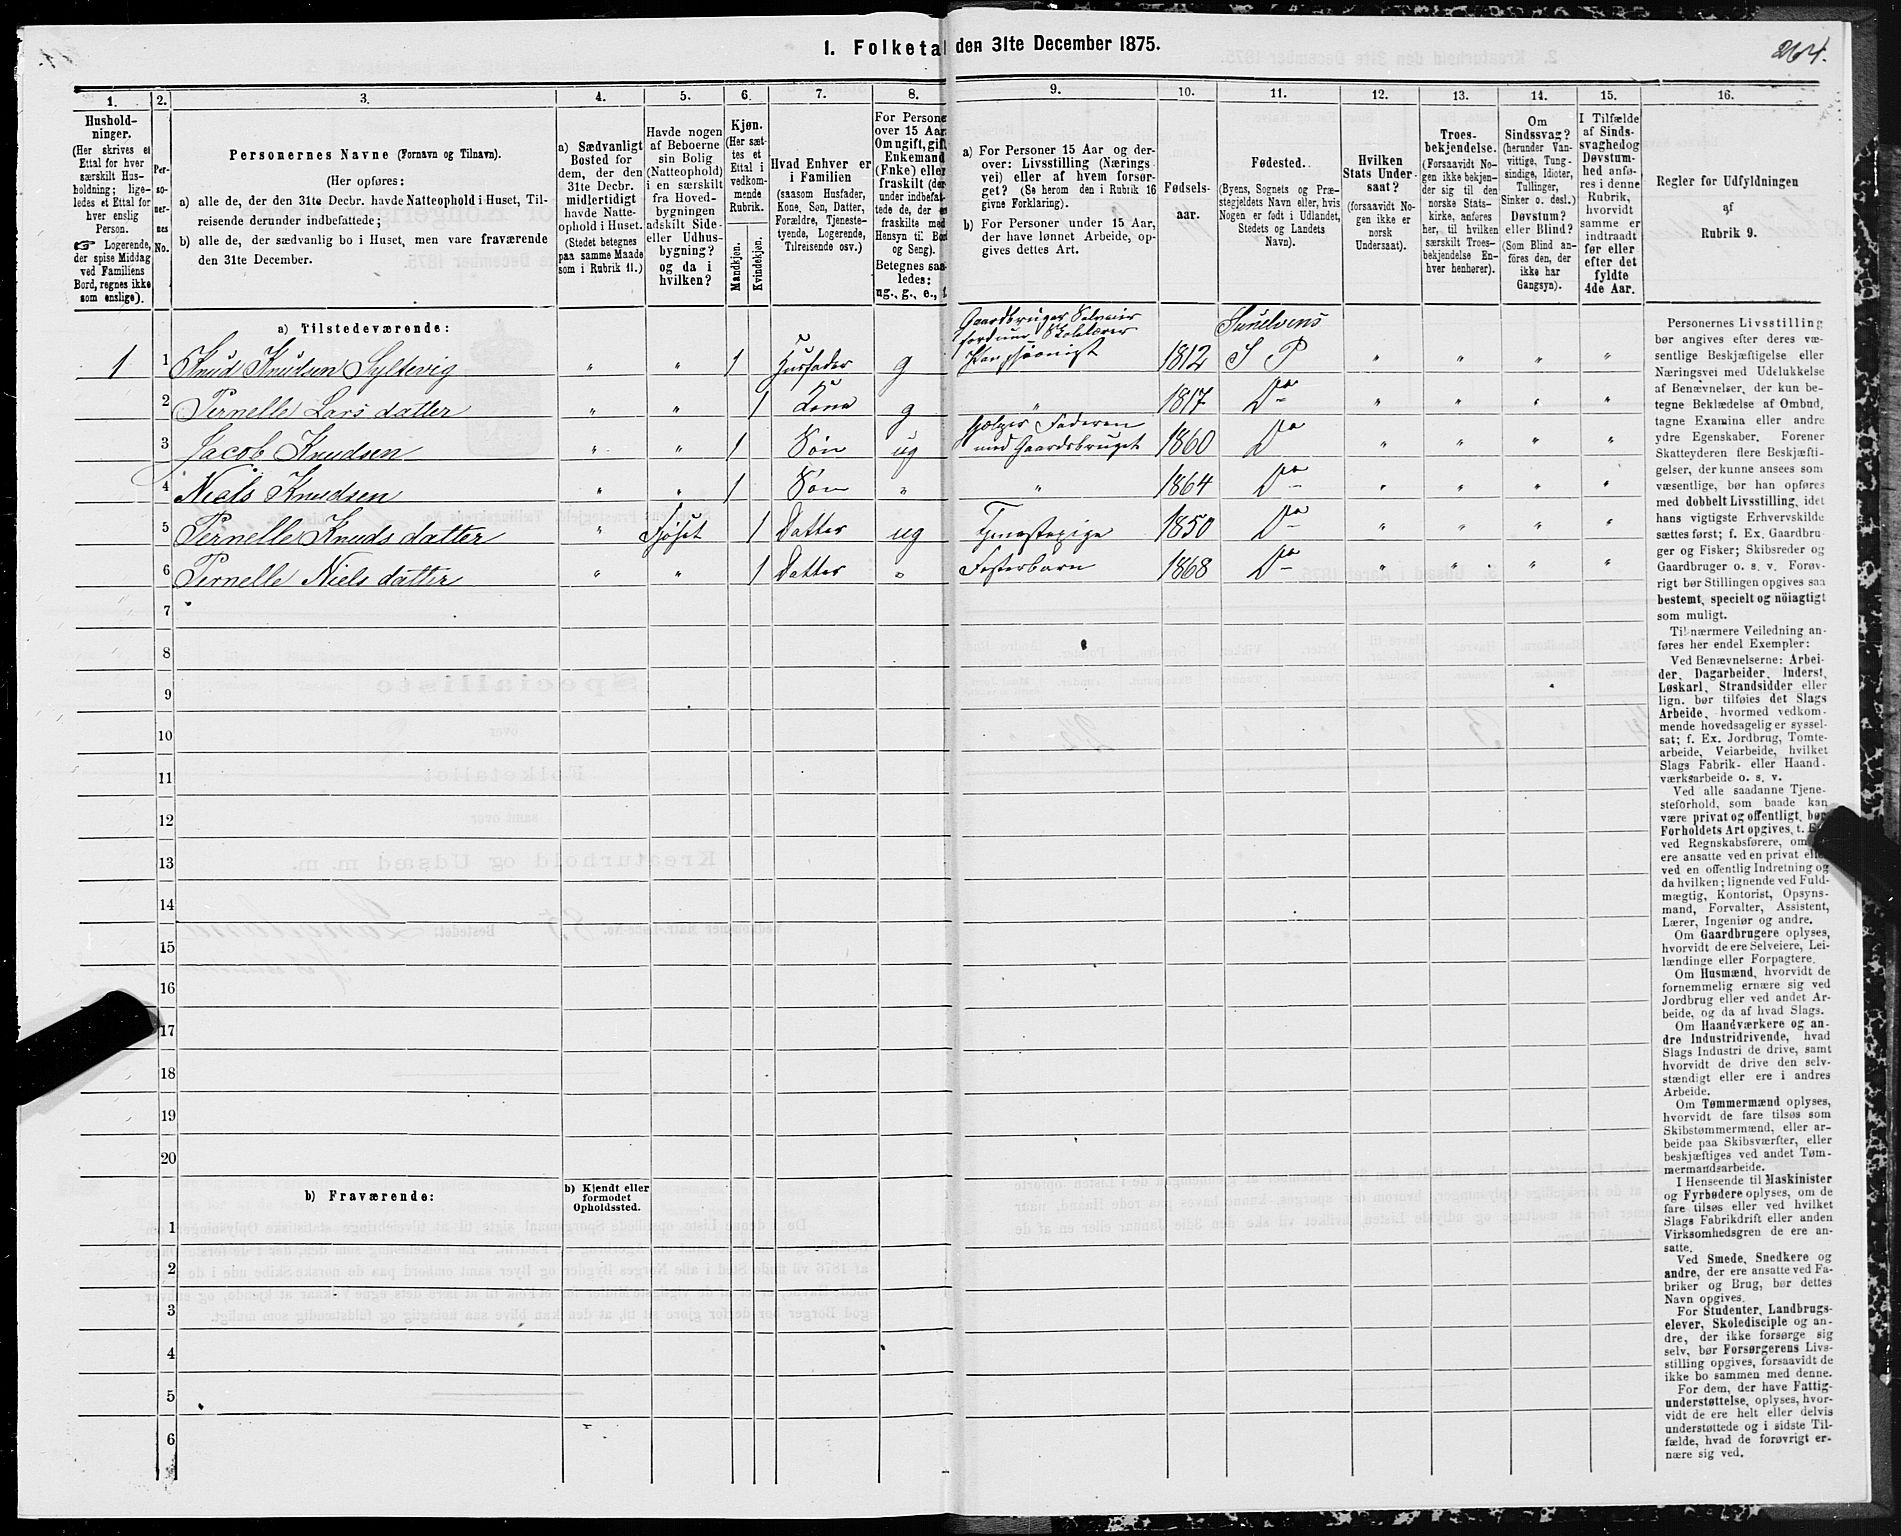 1. Folketal den 31te December 1875.
264.
1.
2.
3.
4.
5.
6.
7.
8.
9.
10.
11.
12.
13.
14.
15.
16.
Hushold-
ninger.
(Her skrives et
Ettal for hver
særskilt Hus-
holdning; lige-
ledes et Ettal for
hver enslig
Person.
☞ Logerende,
der spise Middag
ved Familiens
Bord, regnes ikke
som enslige).
Per-
so-
ner-
nes
No.
Personernes Navne (Fornavn og Tilnavn).
(Her opføres:
a) alle de, der den 31te Decbr. havde Natteophold i Huset, Til-
reisende derunder indbefattede;
b) alle de, der sædvanlig bo i Huset, men vare fraværende
den 31te December.
a) Sædvanligt
Bosted for
dem, der den
31te Decbr.
midlertidigt
havde Natte-
ophold i Huset.
(Stedet betegnes
paa samme Maade
som i Rubrik 11.)
Havde nogen
af Beboerne
sin Bolig
(Natteophold)
i en særskilt
fra Hoved-
bygningen
adskilt Side-
eller Udhus-
bygning?
og da i
hvilken?
Kjøn.
(Her sæt-
tes et
Ettal i
vedkom-
mende
Rubrik.
Mandkjøn.
Kvindekjøn.
Hvad Enhver er
i Familien
(saasom Husfader,
Kone, Søn, Datter,
Forældre, Tjeneste-
tyende, Logerende,
Tilreisende osv.)
For Persone
over 15 Aar
Om ugift, gift
Enkemand
(Enke) eller
fraskilt (der-
under indbefat-
tede de, der e
fraskilte med
Hensyn til Bord
og Seng).
Betegnes saa-
ledes:
ug., g., e., f
a) For Personer 15 Aar og der-
over: Livsstilling (Nærings-
vei) eller af hvem forsør-
get? (Se herom den i Rubrik 16
givne Forklaring).
b) For Personer under 15 Aar,
der have lønnet Arbeide, op-
gives dettes Art.
Fødsels-
aar.
Fødested.
(Byens, Sognets og Præ-
stegjeldets Navn eller, hvis
Nogen er født i Udlandet,
Stedets og Landets
Navn).
Hvilken
Stats Under-
saat?
(forsaavidt No-
gen ikke er
norsk
Undersaat).
Troes-
bekjendelse.
(Forsaavidt No-
gen ikke bekjen-
der sig til den
norske Stats-
kirke, anføres
her, til hvilken
særskilt Troes-
bekjendelse En-
hver henhører).
Om
Sindssvag?
(herunder Van-
vittige, Tung-
sindige, Idioter,
Tullinger,
Sinker o. desl.)
Døvstum?
eller Blind?
(Som Blind an-
føres den, der
ikke har
Gangsyn).
I Tilfælde
af Sinds-
svaghed og
Døvstum-
hed anfø-
res i denne
Rubrik,
hvorvidt
samme er
indtraadt
før eller
efter det
fyldte
4de Aar.
Regler for Udfyldningen
af
Rubrik 9.
a) Tilstedeværende:
1 1 Knud Knudsen Syltevig " " 1 Husfader g Gaardbruger Selveier
fordum Skolelærer
Pansjonist 1812 Sunelvens
S P " " " "
2 Pernelle Larsdatter " " 1 Kone g " 1817 Do " " " "
3 Jacob Knudsen " " 1 Søn ug hjælper Faderen
med Gaardsbruget 1860 Do " " " "
4 Niels Knudsen " " 1 Søn " " 1864 Do " " " "
5 Pernelle Knudsdatter " Fjøset 1 Datter ug Tjenestepige 1850 Do " " " "
6 Pernelle Nielsdatter " " 1 Datter " Fosterbarn 1868 Do " " " "
7
8
9
10
11
12
13
14
15
16
17
18
19
20
b) Fraværende:
b) Kjendt eller
formodet
Opholdssted.
1
2
3
4
5
6
Personernes Livsstilling
bør angives efter deres væ-
sentlige Beskjæftigelse eller
Næringsvei med Udelukkelse
af Benævnelser, der kun be-
tegne Beklædelse af Ombud,
tagne Examina eller andre
ydre Egenskaber. Forener
Skatteyderen flere Beskjæfti-
gelser, der kunne ansees som
væsentlige, bør han opføres
med dobbelt Livsstilling, idet
hans vigtigste Erhvervskilde
sættes først; f. Ex. Gaardbru-
ger og Fisker; Skibsreder og
Gaardbruger o. s. v. Forøv-
rigt bør Stillingen opgives saa
bestemt, specielt og nöiagtigt
som muligt.
Til nærmere Veiledning an-
føres her endel Exempler:
Ved Benævnelserne: Arbei-
der, Dagarbeider, Inderst,
Løskarl, Strandsidder eller
lign. bør tilføies det Slags
Arbeide, hvormed vedkom-
mende hovedsagelig er syssel-
sat; f. Ex. Jordbrug, Tomte-
arbeide, Veiarbeide, hvilket
Slags Fabrik- eller Haand-
værksarbeide o. s. v.
Ved alle saadanne Tjene-
steforhold, som baade kan
være privat og offentligt, bør
Forholdets Art opgives, t. E
ved Regnskabsførere, om
ere ansatte ved en privat elle
ved en offentlig Indretning og
da hvilken; lignende ved Fuld-
mægtig, Kontorist, Opsyns-
mand, Forvalter, Assistent,
Lærer, Ingeniør og andre.
Om Gaardbrugere oplyses,
hvorvidt de ere Selveiere, Lei-
lændinge eller Forpagtere.
Om Husmænd, hvorvidt de
fornemmelig ernære sig ved
Jordbrug eller ved andet Ar-
beide, og da af hvad Slags.
Om Haandværkere og an-
dre Industridrivende, hvad
Slags Industri de drive, samt
hvorvidt de drive den selv-
stændigt eller ere i andres
Arbeide.
Om Tømmermænd oplyses,
hvorvidt de fare tilsøs som
Skibstømmermænd, eller ar-
beide paa Skibsværfter, eller
beskjæftiges ved andet Tøm-
mermandsarbeide.
I Henseende til Maskinister
og Fyrbødere oplyses, om de
fare tilsøs eller ved hvilket
Slags Fabrikdrift eller anden
Virksomhedsgren de ere an-
satte.
Ved Smede, Snedkere og
andre, der ere ansatte ved Fa-
briker og Brug, bør dettes
Navn opgives.
For Studenter, Landbrugs-
elever, Skoledisciple og an-
dre, der ikke forsørge sig
selv, bør Forsørgerens Livs-
stilling opgives, forsaavidt de
ikke bo sammen med denne.
For dem, der have Fattig-
understøttelse, oplyses, hvor-
vidt de ere helt eller delvis
understøttede og i sidste Til-
fælde, hvad de forøvrigt er-
nære sig ved.